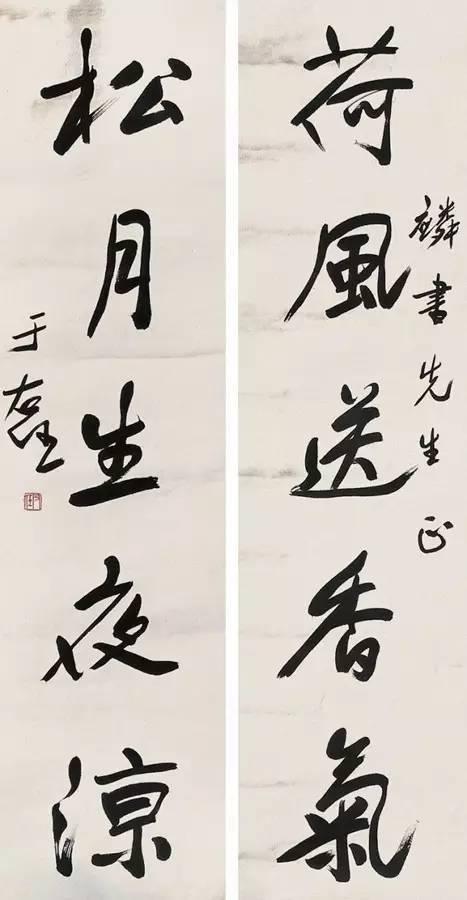 麟書先生正
荷風送香氣
松月生夜涼
于右任